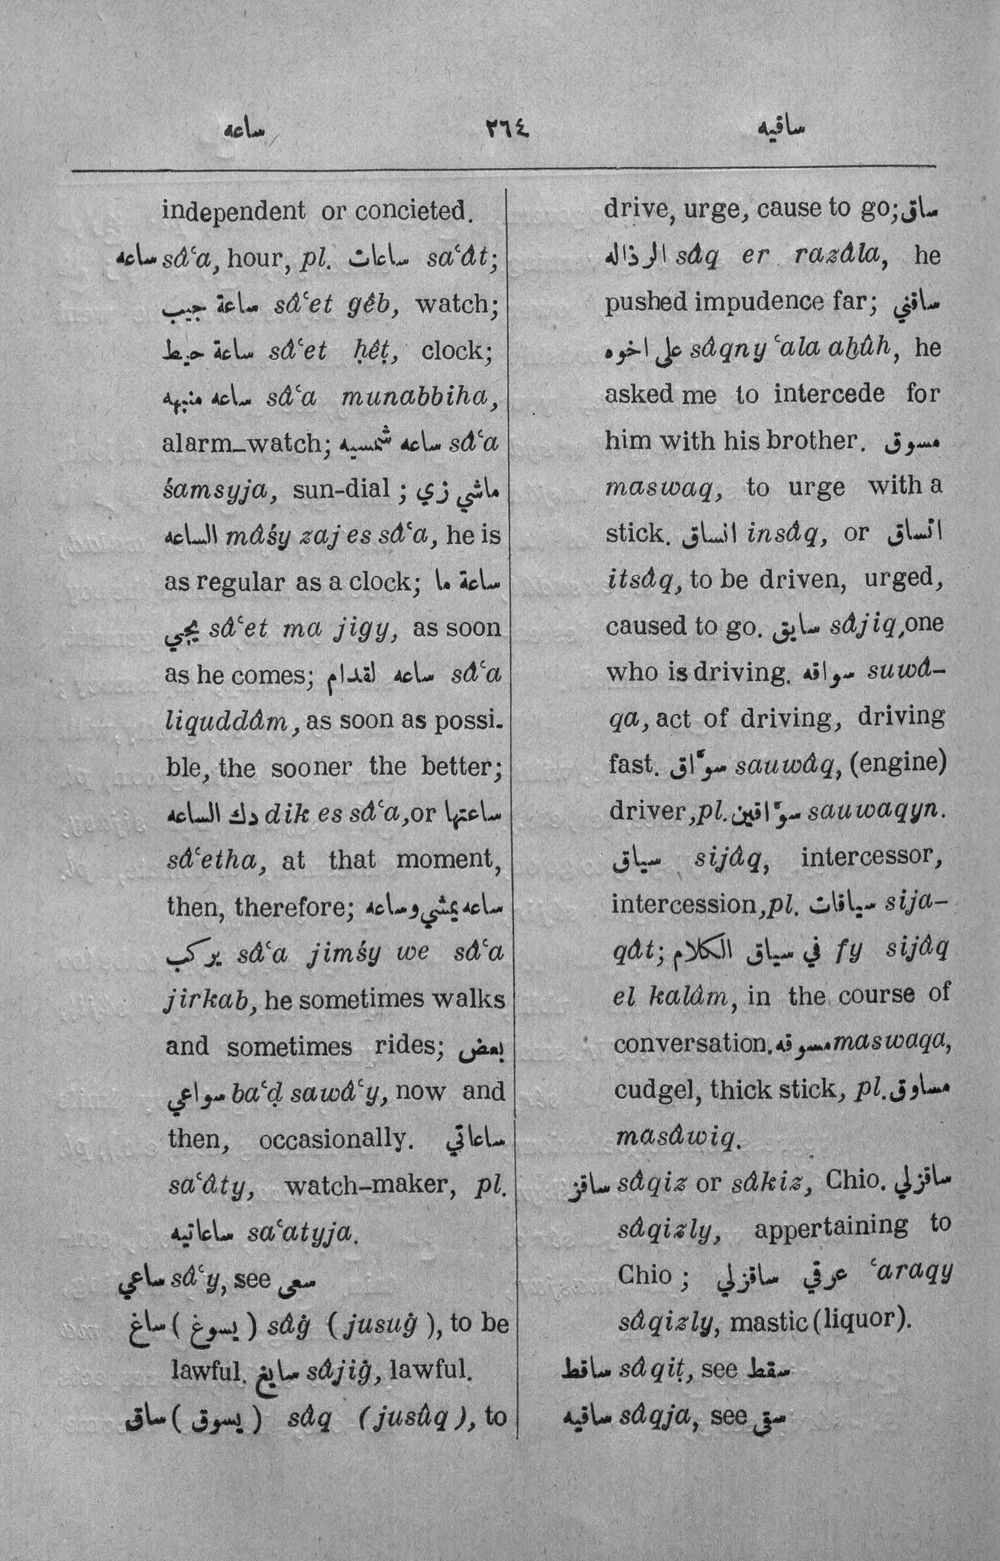 ساعه ٢٦٤ ساقيه
independent or concieted.
ساعه sâʿa, hour, pl. ساعات saʿât;
ساعة جيب sâʿet gêb, watch;
ساعة حيط sâʿet ḥêṭ, clock;
ساعه منبهه sâʿa munabbiha,
alarm-watch; ساعه شمسيه sâʿa
śamsyja, sun-dial ; ماشي زي
الساعه mâśy zaj es sâʿa, he is
as regular as a clock; ساعة ما
يجي sâʿet ma jigy, as soon
as he comes; ساعه لقدام sâʿa
liquddâm, as soon as possi-
ble, the sooner the better;
دك الساعه dik es sâʿa, or ساعتها
sâʿetha, at that moment,
then, therefore; ساعه يمشي وساعه
يركب sâʿa jimśy we sâʿa
jirkab, he sometimes walks
and sometimes rides; بعض
سواعي baʿḍ sawâʿy, now and
then, occasionally. ساعاتي
saʿâty, watch-maker, pl.
ساعاتيه saʿatyja.
ساعي sâʿy, see سعى
ساغ (يسوغ) sâġ (jusuġ), to be
lawful. سايغ sâjiġ, lawful.
ساق (يسوق) sâq (jusûq), to
drive, urge, cause to go; ساق
الرذاله sâq er razâla, he
pushed impudence far; ساقني
على اخوه sâqny ʿala aḫûh, he
asked me to intercede for
him with his brother. مسوق
maswaq, to urge with a
stick. انساق insâq, or اتساق
itsâq, to be driven, urged,
caused to go. سايق sâjiq, one
who is driving. سواقه suwâ-
qa, act of driving, driving
fast. سوّاق sauwâq, (engine)
driver, pl. سوّاقين sauwaqyn.
سياق sijâq, intercessor,
intercession, pl. سياقات sija-
qât; في سياق الكلام fy sijâq
el kalâm, in the course of
conversation. مسوقه maswaqa,
cudgel, thick stick, pl. مساوق
masâwiq.
ساقز sâqiz or sâkiz, Chio. ساقزلي
sâqizly, appertaining to
Chio ; عرقي ساقزلي ʿaraqy
sâqizly, mastic (liquor).
ساقط sâqiṭ, see سقط
ساقيه sâqja, see سقى